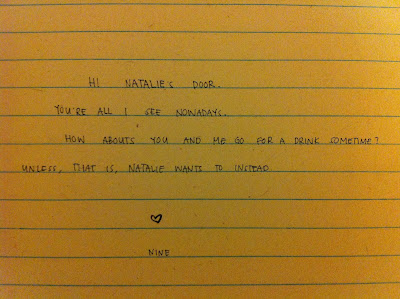 HI NATALIE'S DOOR.
YOU'RE ALL I SEE NOWADAYS.
HOW ABOUTS YOU AND ME GO FOR A DRINK SOMETIME?
UNLESS, THAT IS, NATALIE WANTS TO INSTEAD.
♡
NINE